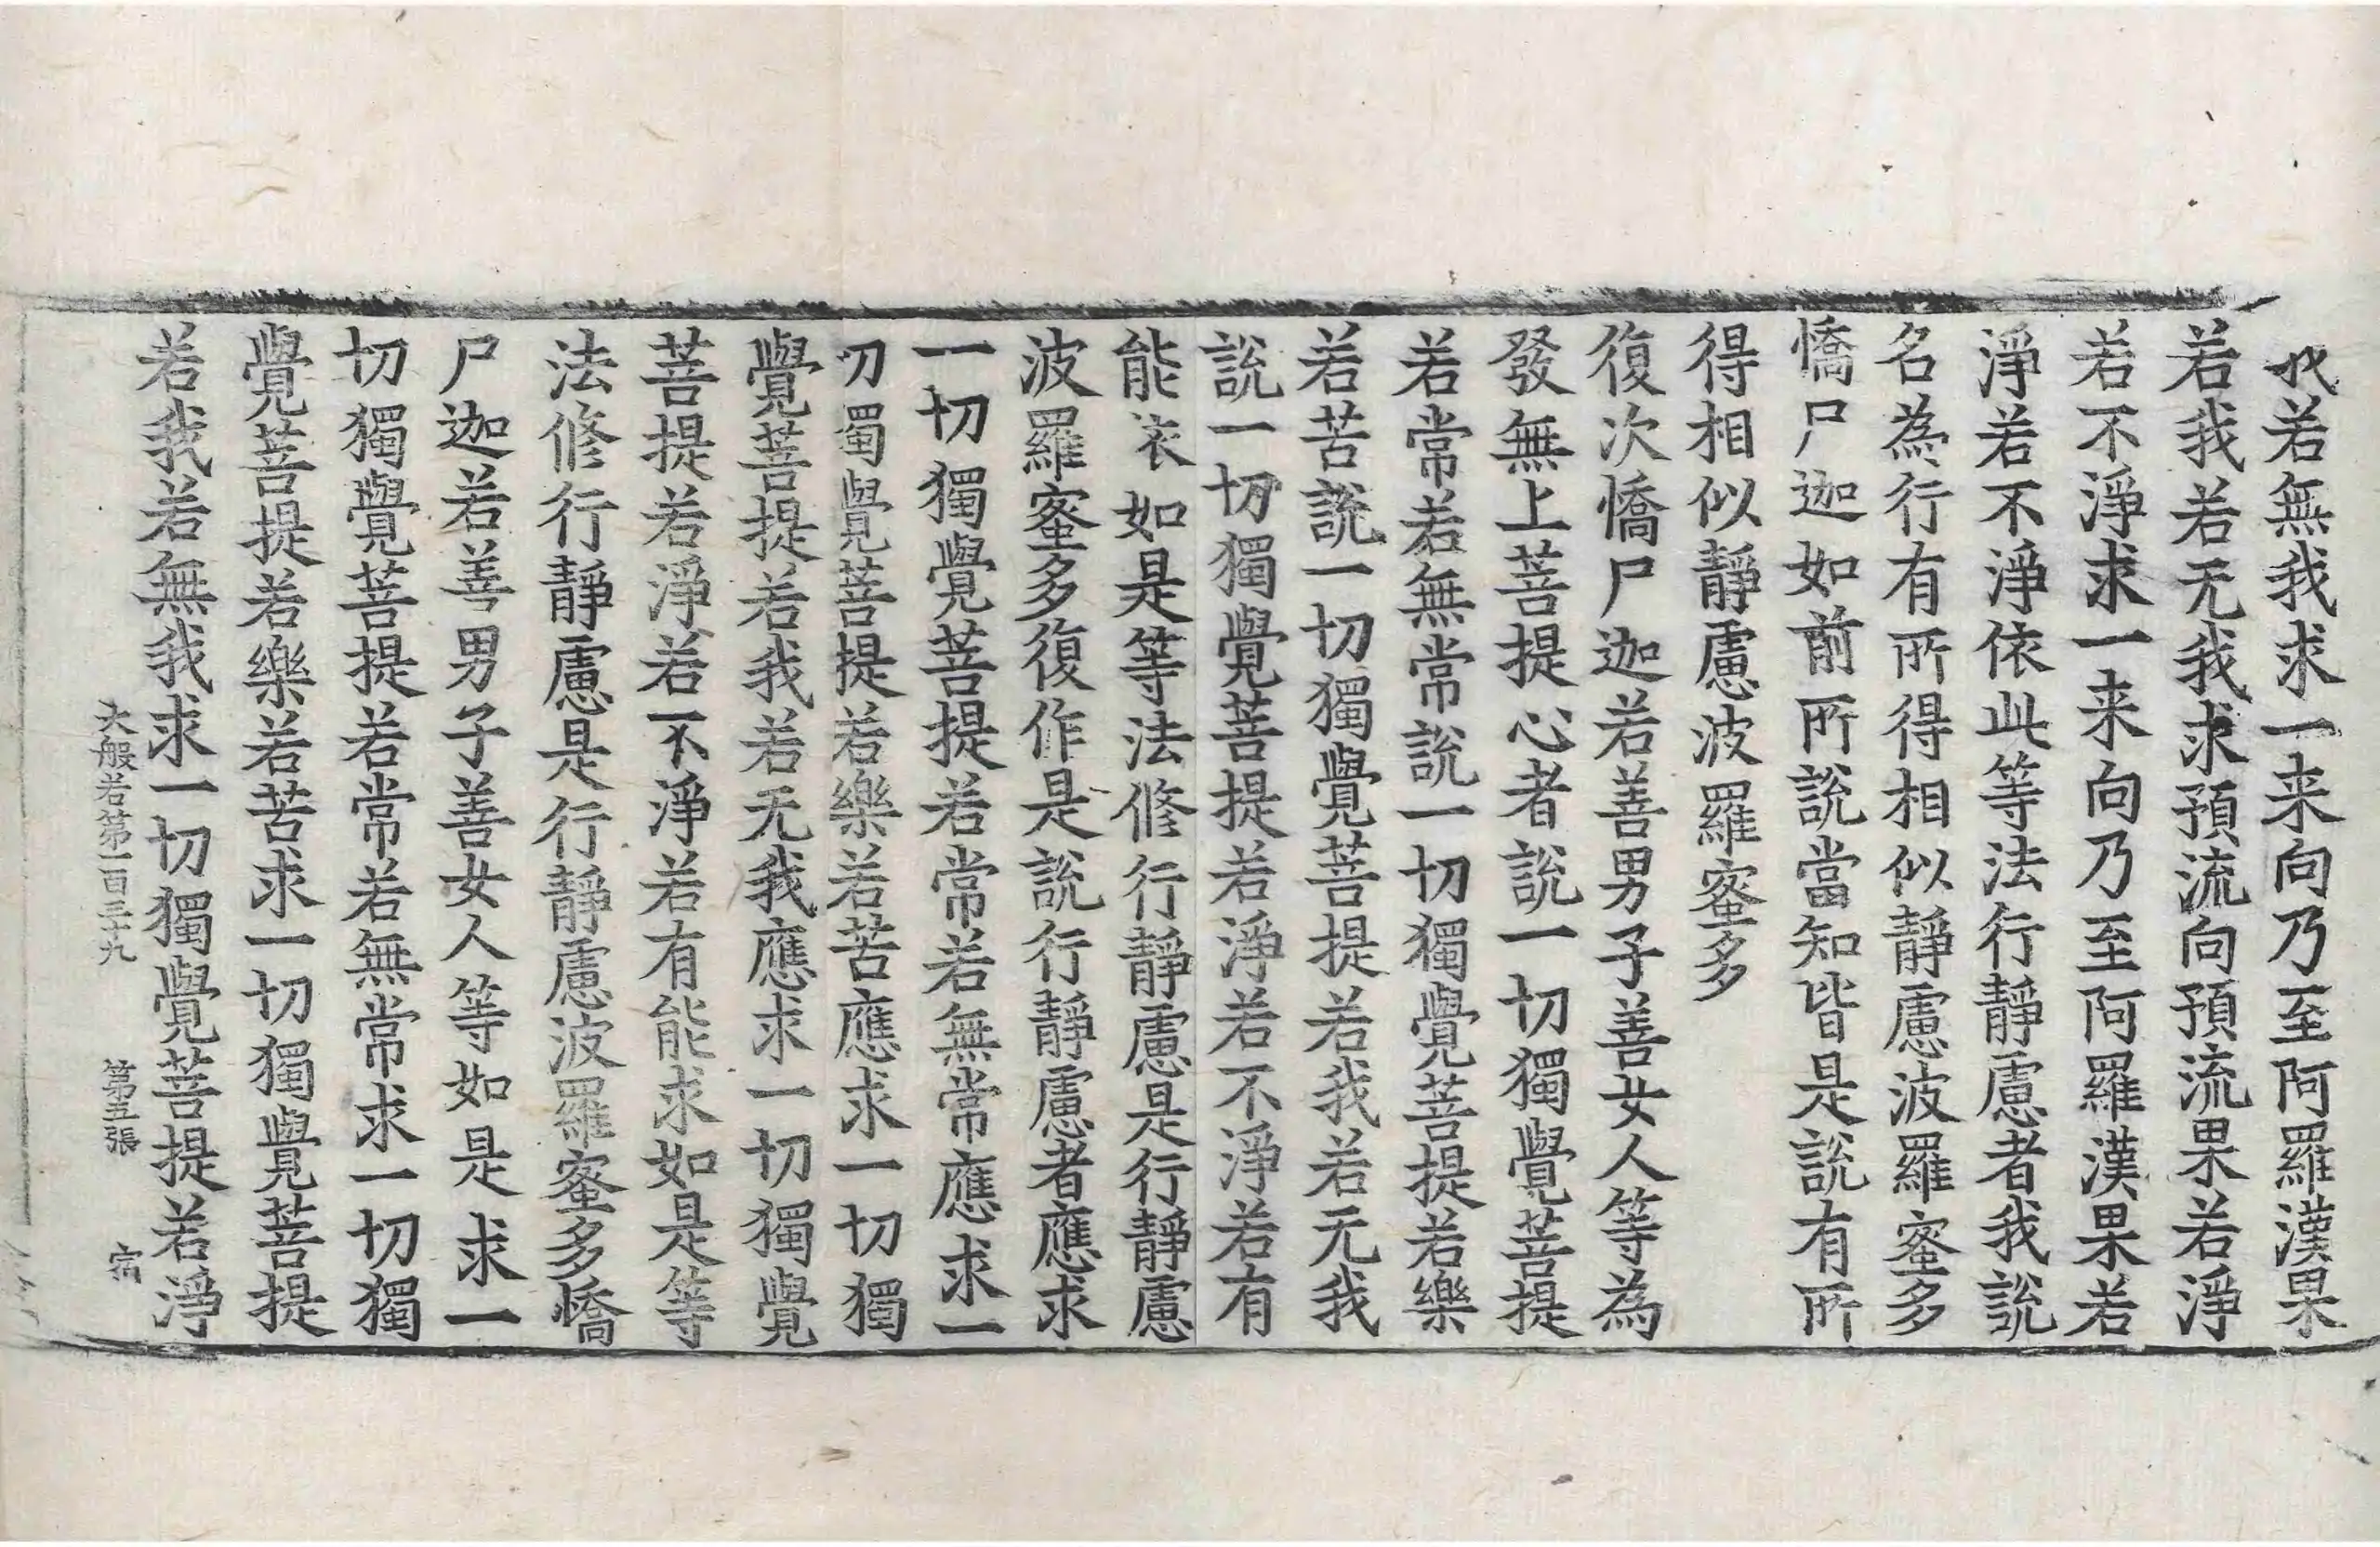 我若無我求一来向乃至阿羅漢果
若我若无我求預流向預流果若淨
若不淨求一来向乃至阿羅漢果若
淨若不淨依此等法行靜慮者我說
名為行有所得相似靜慮波羅蜜多
憍尸迦如前所說當知皆是說有所
得相似靜慮波羅蜜多
復次憍尸迦若善男子善女人等為
發無上菩提心者說一切獨覺菩提
若常若無常說一切獨覺菩提若樂
若苦說一切獨覺菩提若我若无我
說一切獨覺菩提若淨若不淨若有
能依如是等法修行靜慮是行靜慮
波羅蜜多復作是說行靜慮者應求
一切獨覺菩提若常若無常應求一
切獨覺菩提若樂若苦應求一切獨
覺菩提若我若无我應求一切獨覺
菩提若淨若不淨若有能求如是等
法修行靜慮是行靜慮波羅蜜多憍
尸迦若善男子善女人等如是求一
切獨覺菩提若常若無常求一切獨
覺菩提若樂若苦求一切獨覺菩提
若我若無我求一切獨覺菩提若淨
大般若第一百三十九 第五張 宿